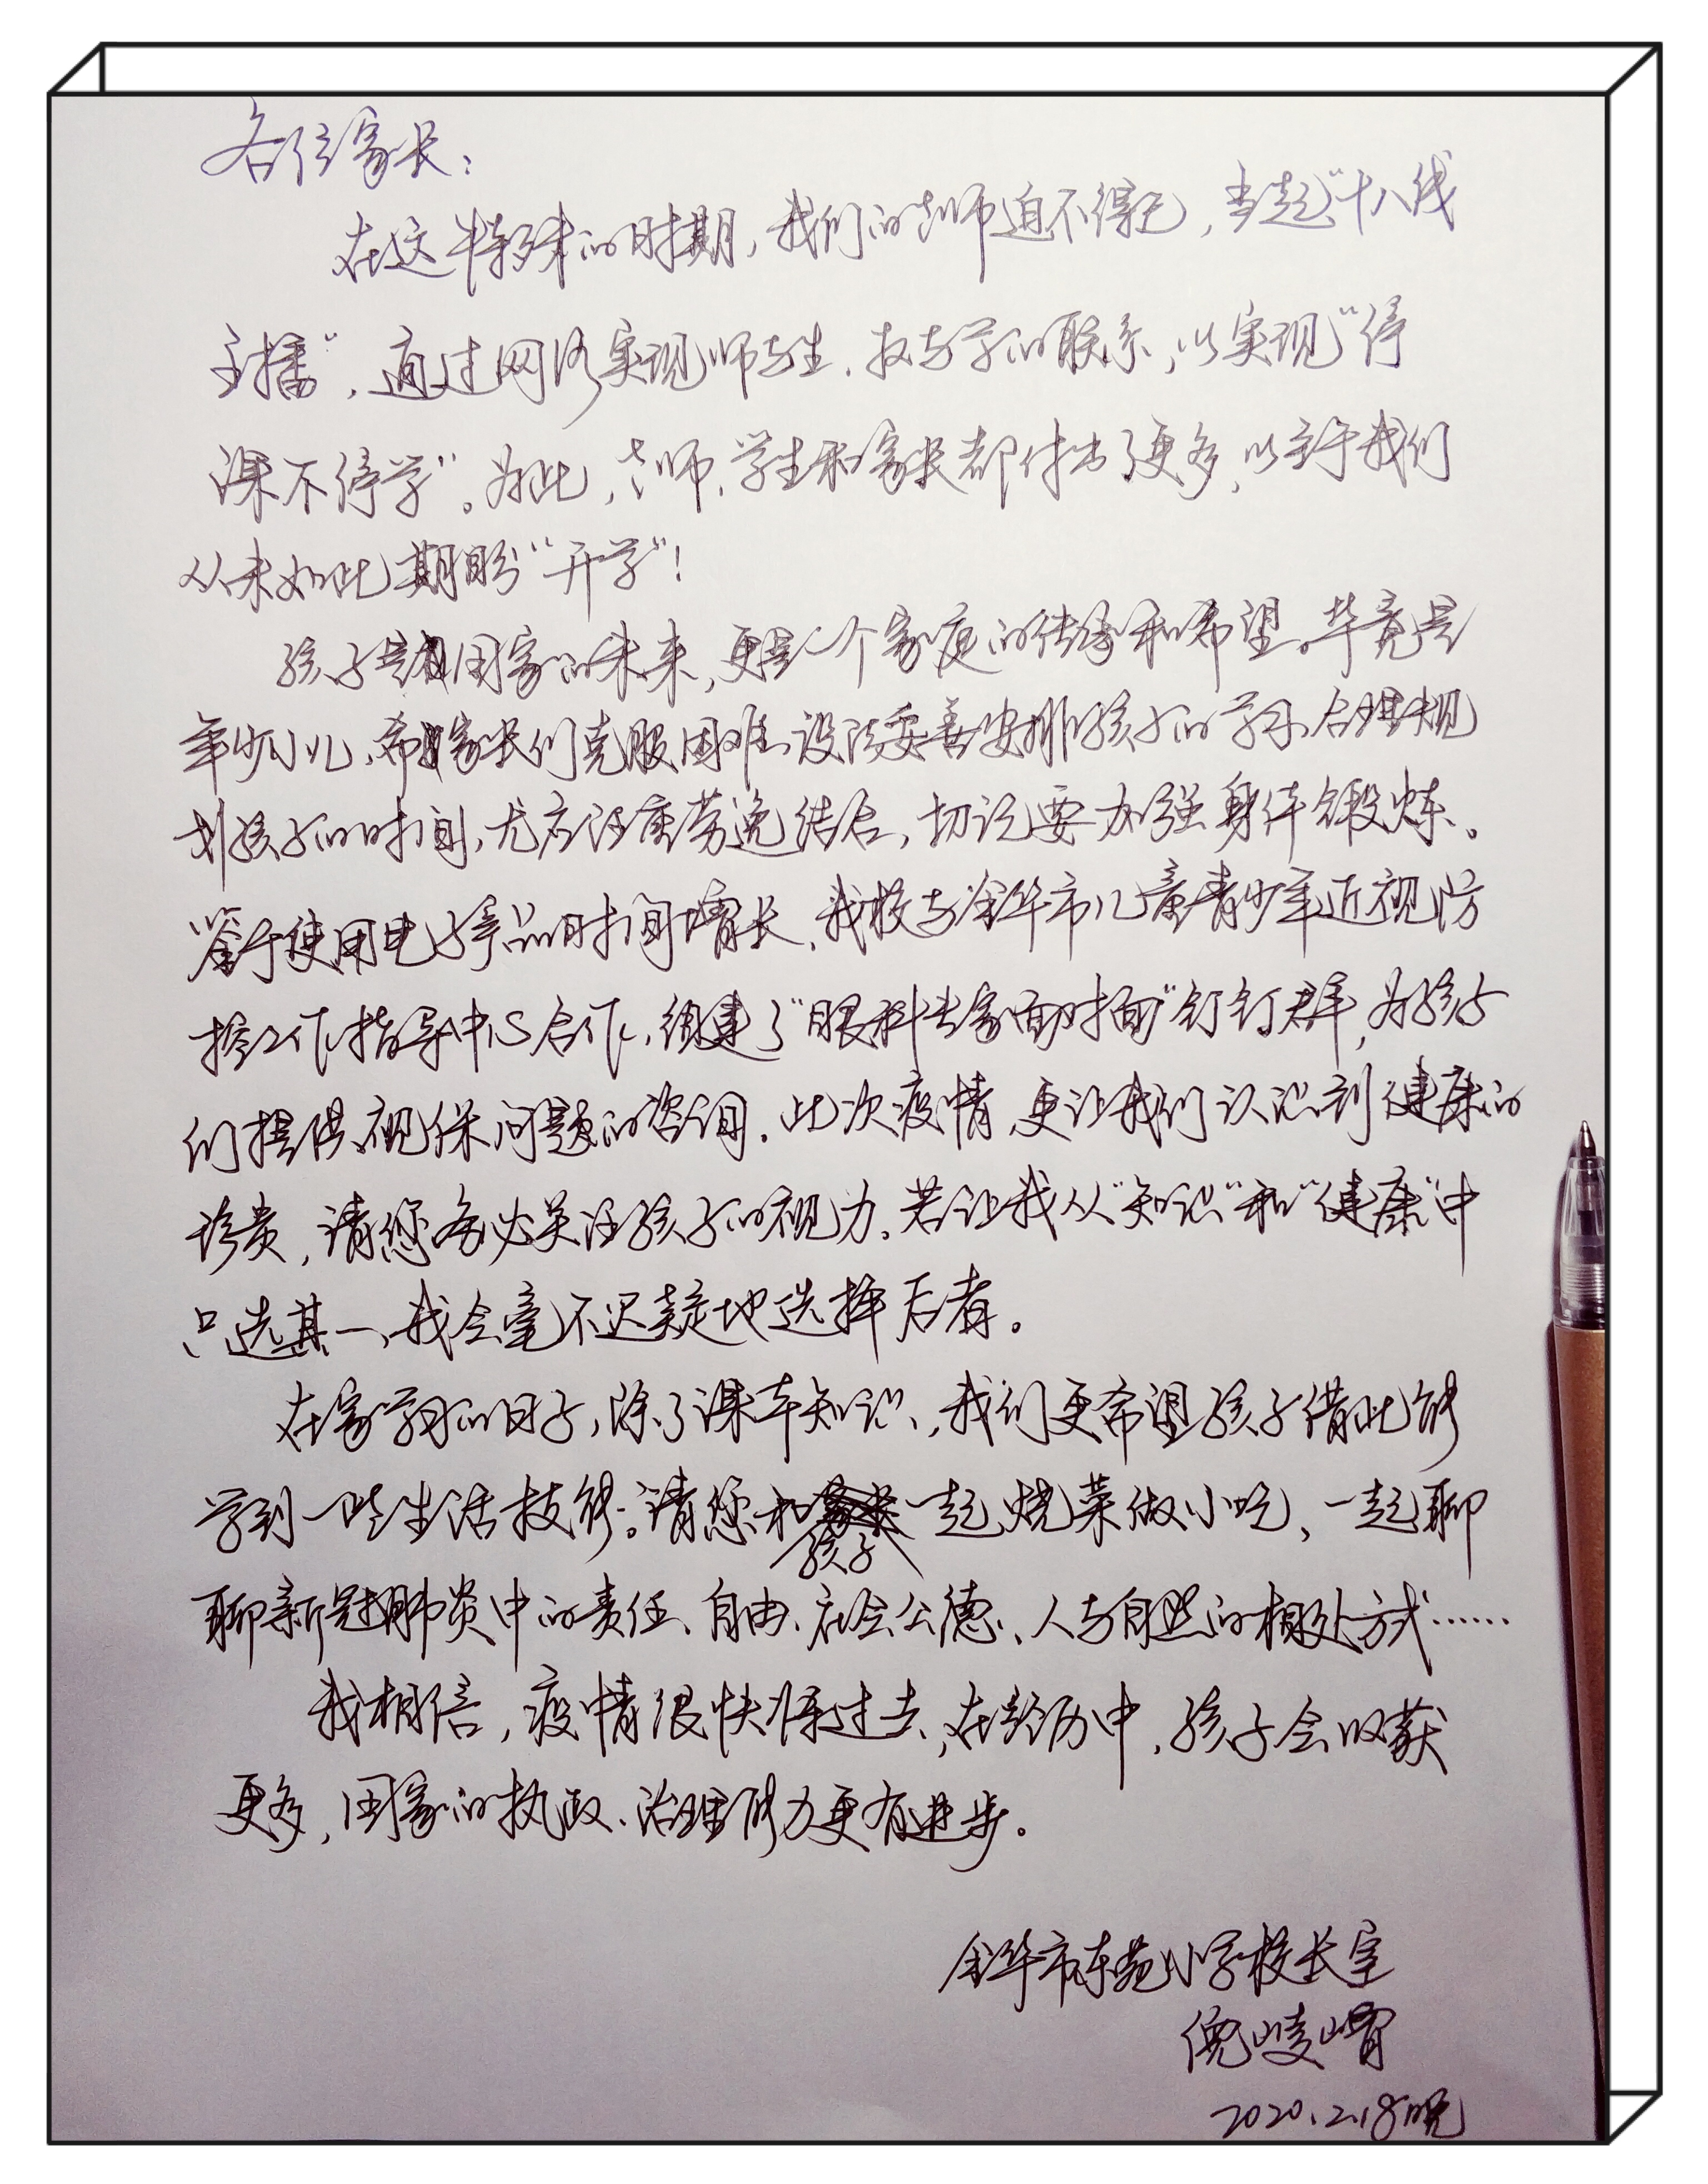 各位家长：
在这特殊的时期，我们的老师迫不得已，当起“十八线
主播”，通过网络实现师与生、教与学的联系，以实现“停
课不停学”。为此，老师、学生和家长都付出了更多，以至于我们
从未如此期盼“开学”！
孩子是国家的未来，更是一个家庭的传承和希望。毕竟是
年少小儿，希家长们克服困难、设法妥善安排孩子的学习、合理规
划孩子的时间，尤应注重劳逸结合，切记要加强身体锻炼。
鉴于使用电子产品时间增长，我校与金华市儿童青少年近视防
控工作指导中心合作，组建了“眼科专家面对面”钉钉群，为孩子
们提供视保问题的咨询。此次疫情，更让我们认识到健康的
珍贵，请您务必关注孩子的视力。若让我从“知识”和“健康”中
只选其一，我会毫不迟疑地选择后者。
在家学习的日子，除了课本知识，我们更希望孩子借此能
学到一些生活技能。请您和孩子一起烧菜做小吃，一起聊
聊新冠肺炎中的责任、自由、社会公德、人与自然的相处方式……
我相信，疫情很快将过去，在经历中，孩子会收获
更多，国家的执政、治理能力更有进步。
金华市东苑小学校长室
倪崚嵋
2020.2.18晚